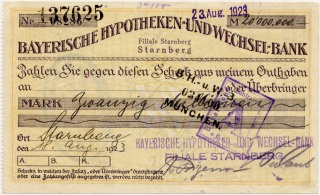 No 137625
23. Aug. 1923
M 20 000 000.-
BAYERISCHE HYPOTHEKEN-UND WECHSEL-BANK
Filiale Starnberg
Starnberg
Zahlen Sie gegen diesen Scheck aus meinem Guthaben
an oder Überbringer
MARK Zwanzig Millionen
B. H. u. W. B.
MÜNCHEN.
Ort Starnberg
11. Aug. 1923
BAYERISCHE HYPOTHEKEN- UND WECHSEL-BANK
FILIALE STARNBERG
A. B. K.
Schecks, in welchen der Zusatz „oder Überbringer" durchstrichen oder
eine Zahlungsfrist angegeben ist, werden nicht bezahlt.